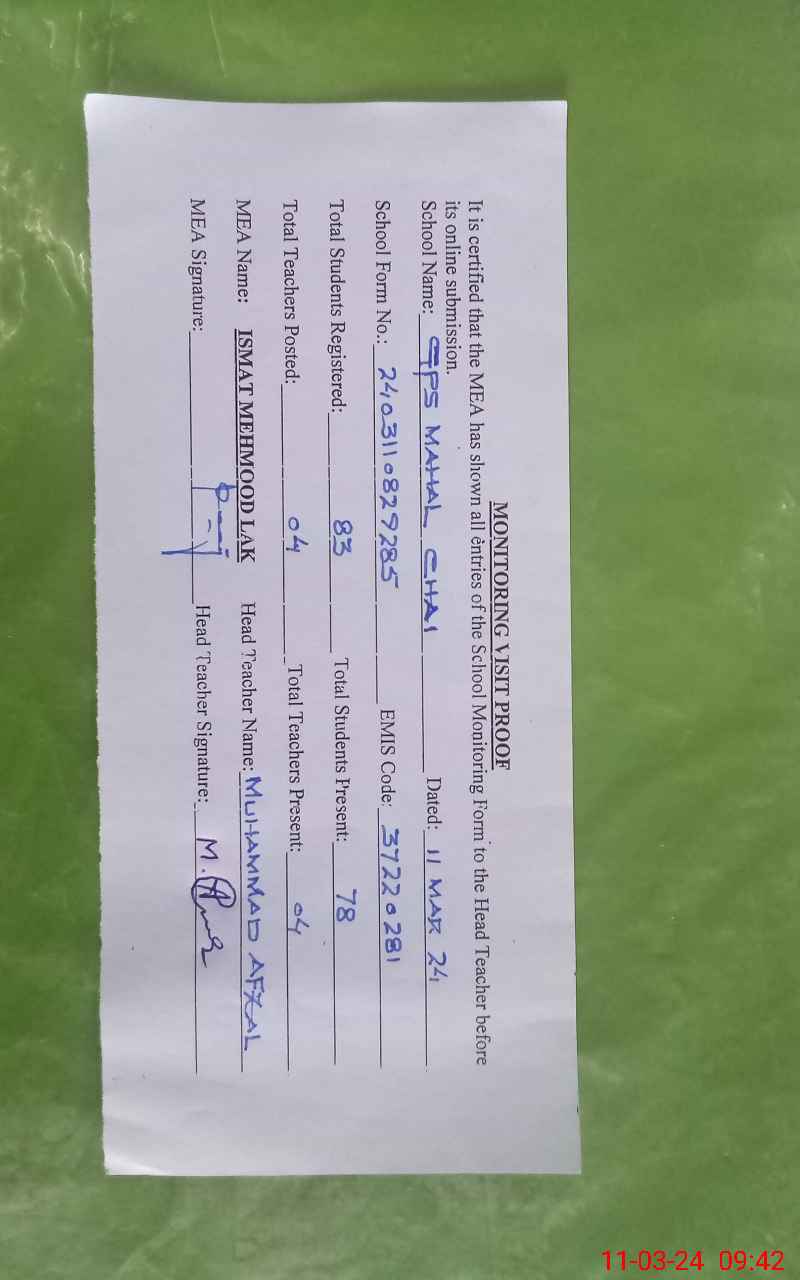 MONITORING VISIT PROOF
It is certified that the MEA has shown all entries of the School Monitoring Form to the Head Teacher before
its online submission.
School Name: GPS MAHAL CHAI Dated: 11 MAR 24
School Form No.: 2403110829285 EMIS Code: 37220281
Total Students Registered: 83 Total Students Present: 78
Total Teachers Posted: 04 Total Teachers Present: 04
MEA Name: ISMAT MEHMOOD LAK Head Teacher Name: MUHAMMAD AFZAL
MEA Signature: Head Teacher Signature: M.
11-03-24 09:42